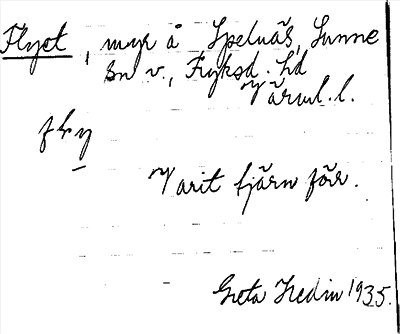 Flyet, myr å Spelnäs, Sunne
sn v., Fryksd. hd
Värml. l.
fly
Varit fjärn förr.
Greta Hedin 1935.